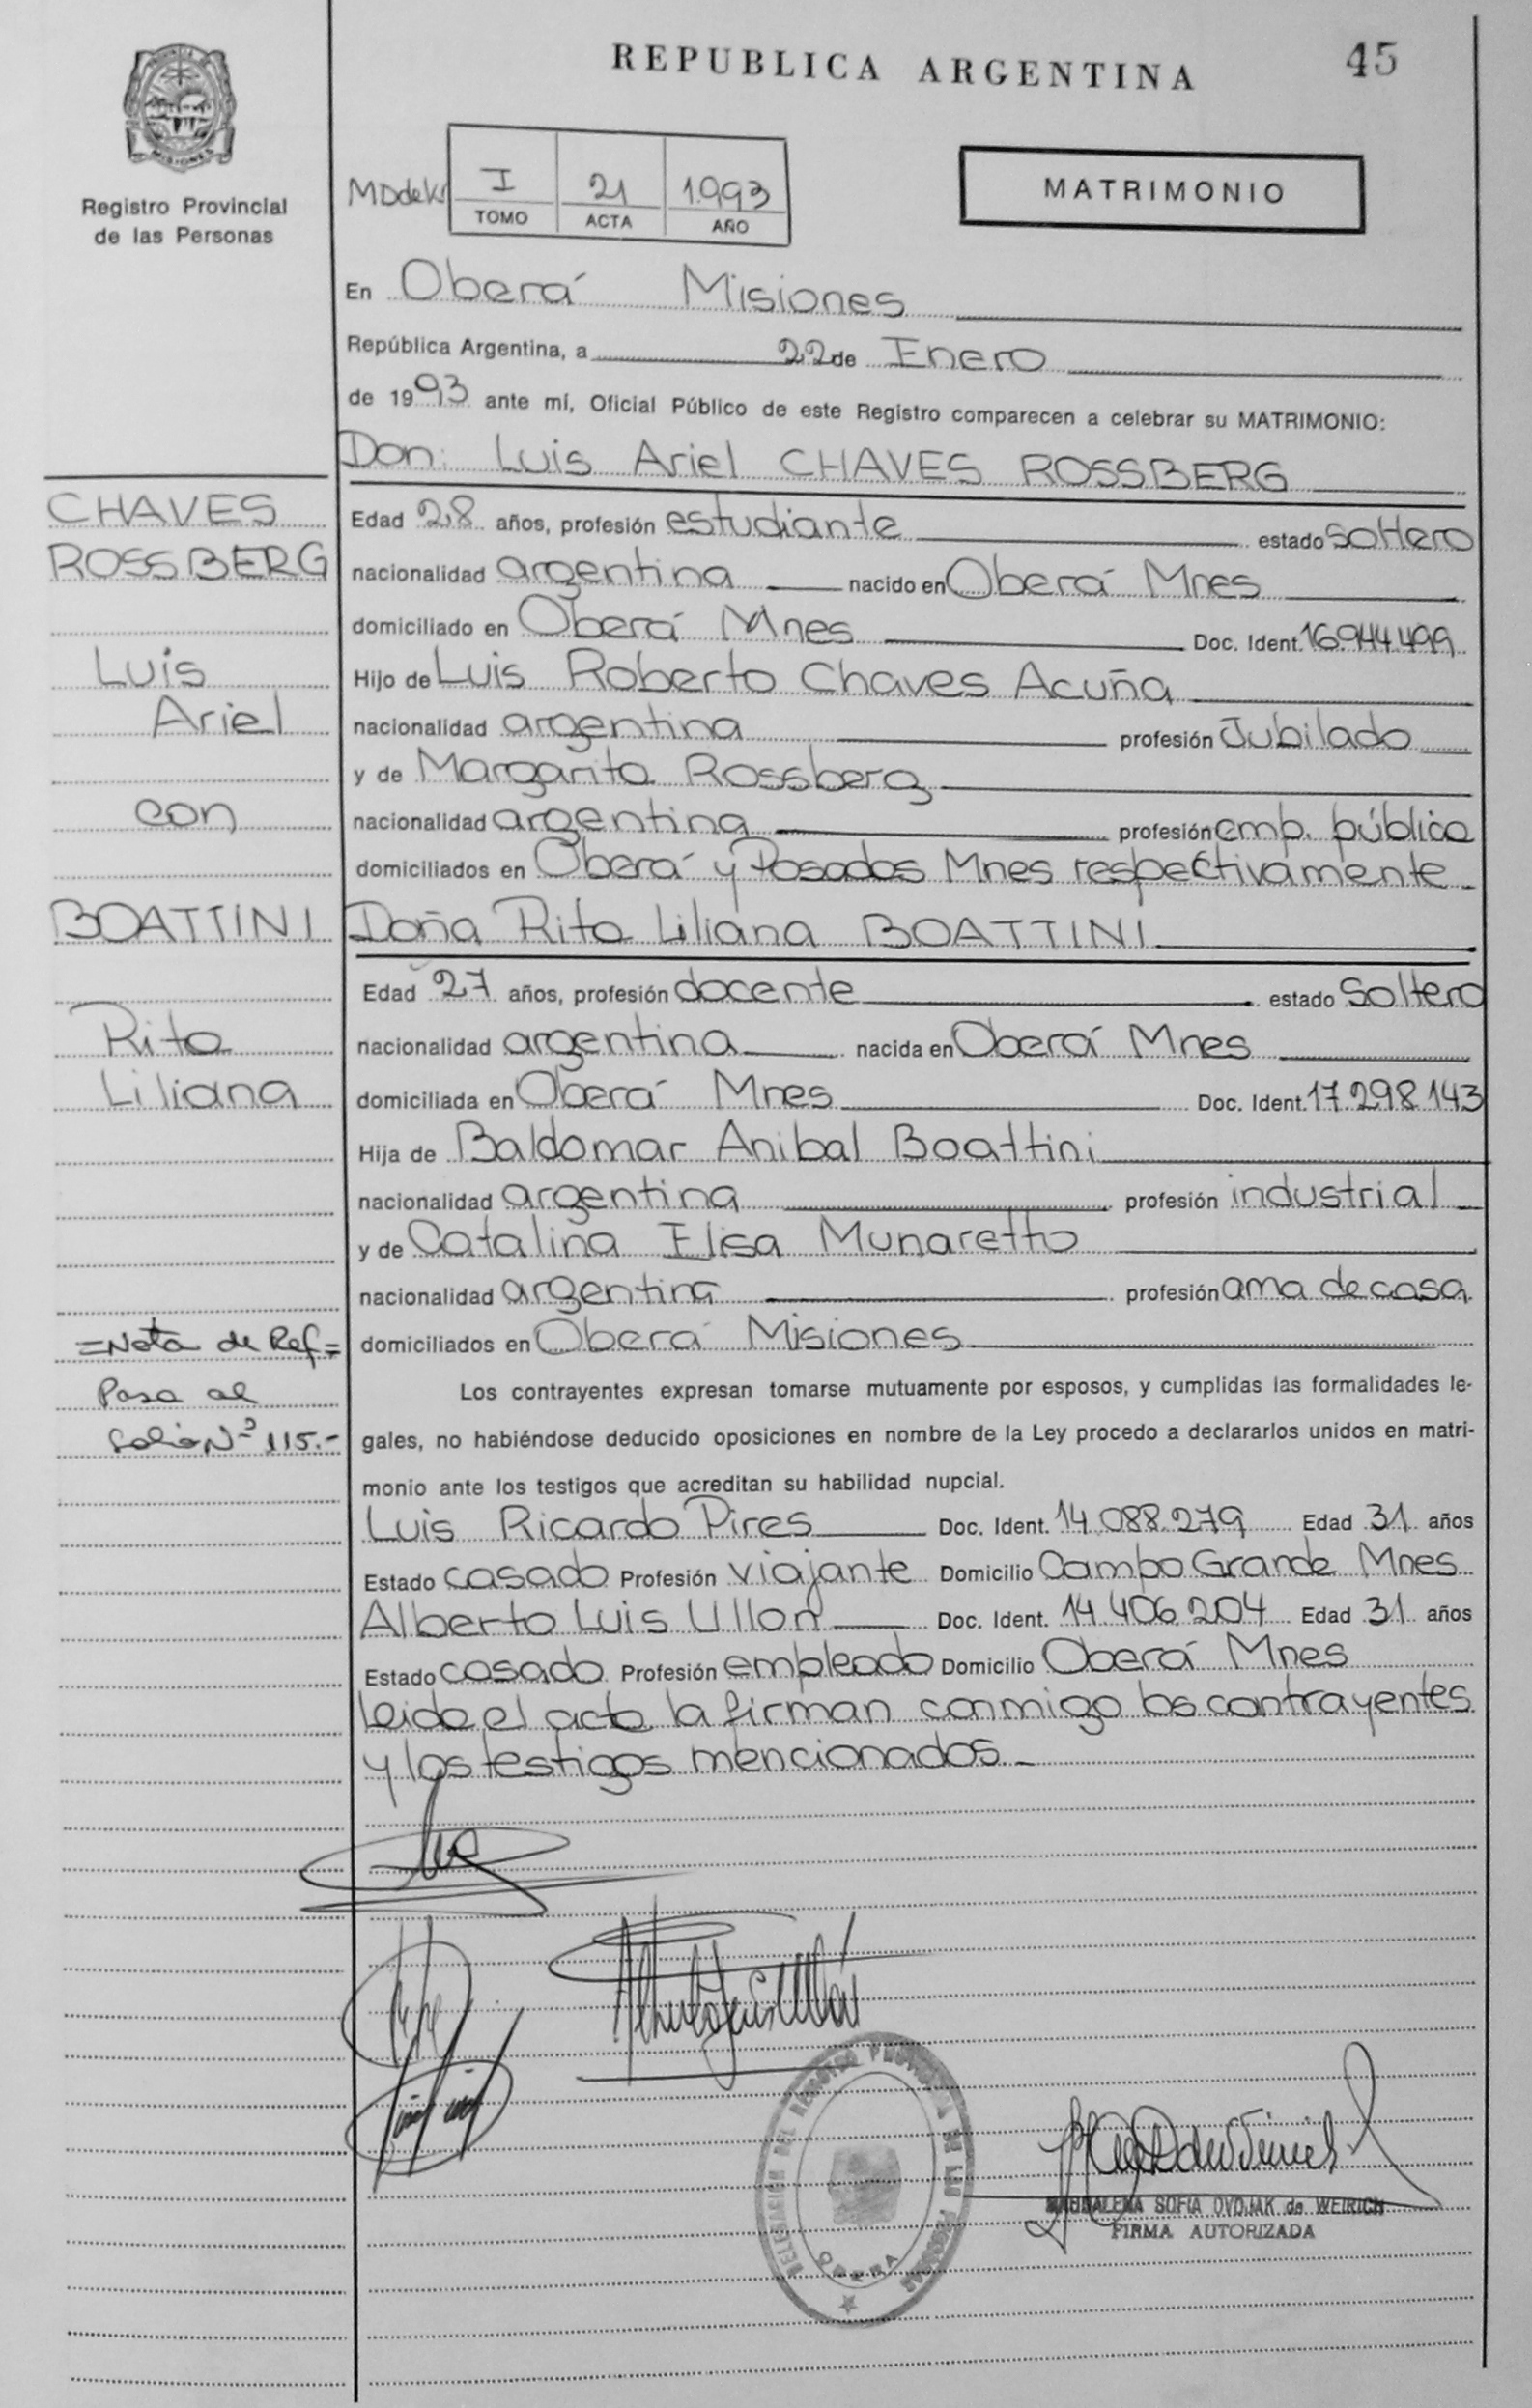 REPUBLICA ARGENTINA
45
MISIONES
Registro Provincial
de las Personas
I 21 1.993
TOMO ACTA AÑO
MATRIMONIO
En Oberá Misiones
República Argentina, a 22 de Enero
de 1993 ante mí, Oficial Público de este Registro comparecen a celebrar su MATRIMONIO:
Don: Luis Ariel CHAVES ROSSBERG
Edad 28 años, profesión estudiante estado soltero
nacionalidad argentina nacido en Oberá Mnes
domiciliado en Oberá Mnes Doc. Ident. 16.944.499
Hijo de Luis Roberto Chaves Acuña
nacionalidad argentina profesión Jubilado
y de Margarita Rossberg
nacionalidad argentina profesión emp. pública
domiciliados en Oberá y Posadas Mnes respectivamente
Doña Rita Liliana BOATTINI
Edad 27 años, profesión docente estado Soltera
nacionalidad argentina nacida en Oberá Mnes
domiciliada en Oberá Mnes Doc. Ident. 17.298.143
Hija de Baldomar Anibal Boattini
nacionalidad argentina profesión industrial
y de Catalina Elisa Munaretto
nacionalidad argentina profesión ama de casa
domiciliados en Oberá Misiones
Los contrayentes expresan tomarse mutuamente por esposos, y cumplidas las formalidades le-
gales, no habiéndose deducido oposiciones en nombre de la Ley procedo a declararlos unidos en matri-
monio ante los testigos que acreditan su habilidad nupcial.
Luis Ricardo Pires Doc. Ident. 14.088.279 Edad 31 años
Estado casado Profesión viajante Domicilio Campo Grande Mnes
Alberto Luis Ullon Doc. Ident. 14.406.204 Edad 31 años
Estado casado Profesión empleado Domicilio Oberá Mnes
Leida el acta la firman conmigo los contrayentes
y los testigos mencionados
CHAVES
ROSSBERG
Luis
Ariel
con
BOATTINI
Rita
Liliana
=Nota de Ref=
Pasa al
folio Nº 115.-
DEL REGISTRO PROVINCIAL DE LAS PERSONAS
OBERA
MAGDALENA SOFIA DVOJAK de WEIRICH
FIRMA AUTORIZADA